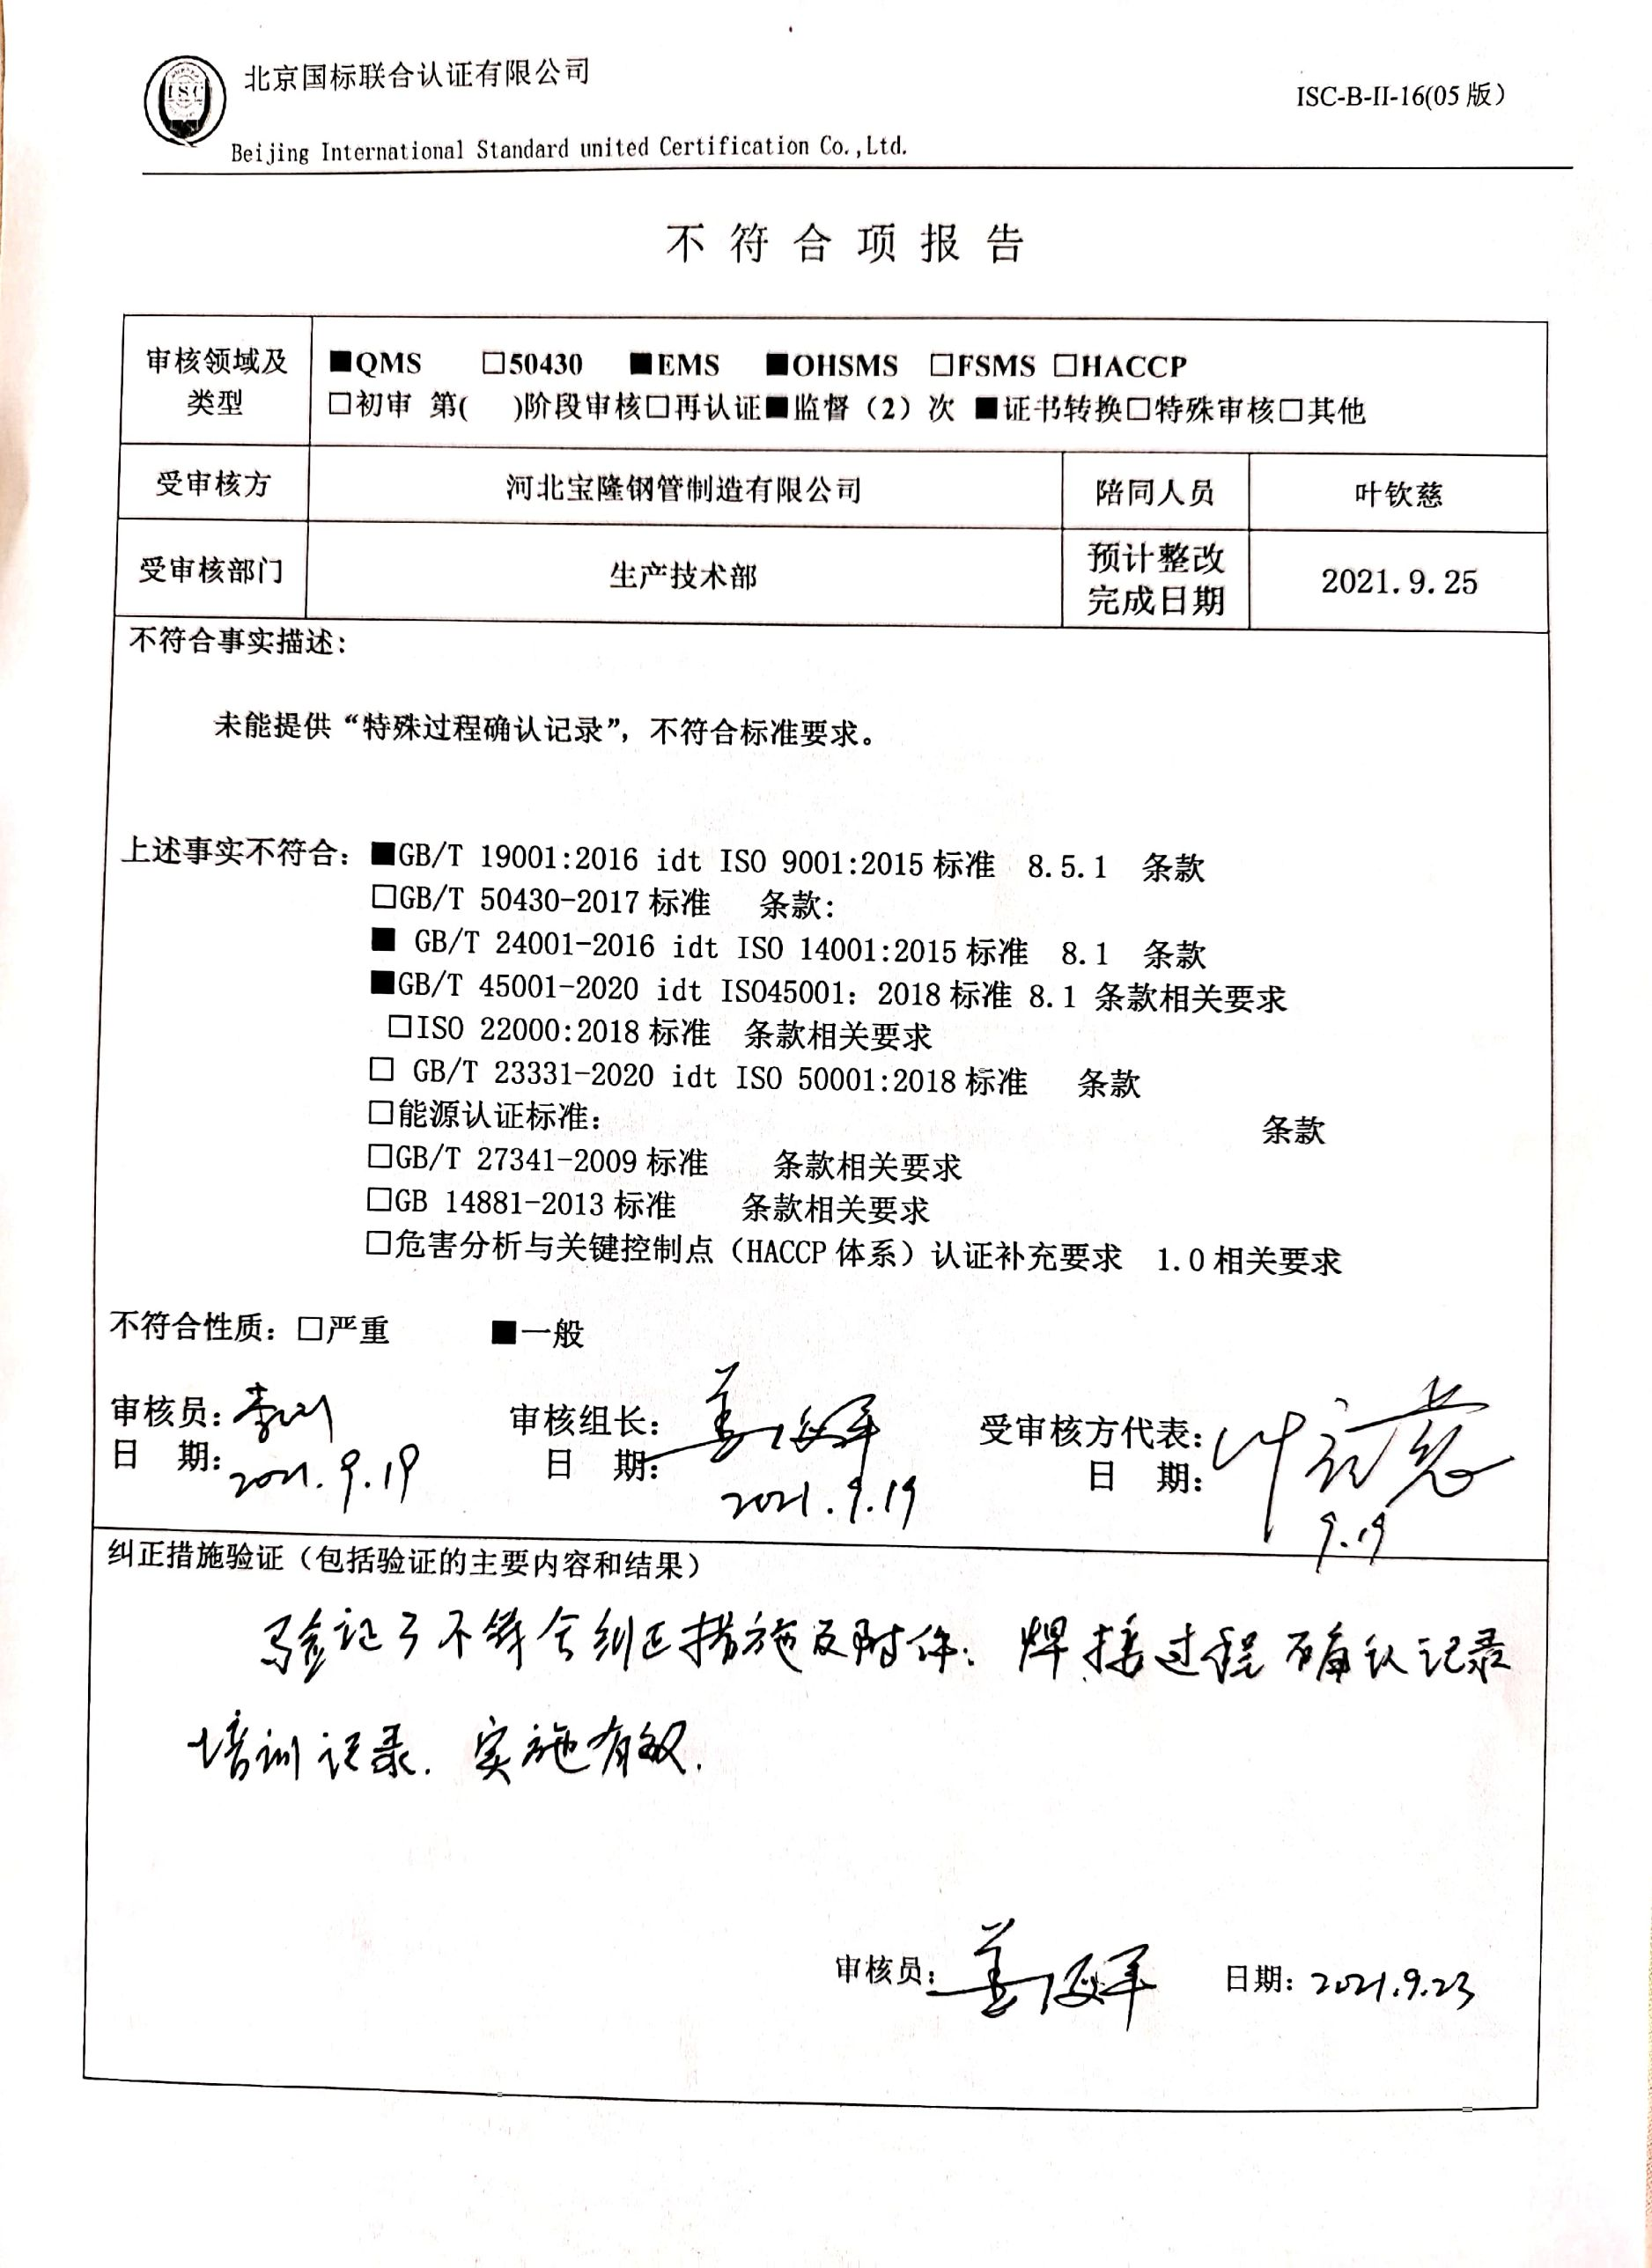 ISC
北京国标联合认证有限公司
ISC-B-II-16(05版）
Beijing International Standard united Certification Co.,Ltd.
不符合项报告
审核领域及类型
■QMS □50430 ■EMS ■OHSMS □FSMS □HACCP
□初审 第( )阶段审核□再认证■监督（2）次 ■证书转换□特殊审核□其他
受审核方 河北宝隆钢管制造有限公司 陪同人员 叶钦慈
受审核部门 生产技术部 预计整改完成日期 2021.9.25
不符合事实描述：
未能提供“特殊过程确认记录”，不符合标准要求。
上述事实不符合：■GB/T 19001:2016 idt ISO 9001:2015标准 8.5.1 条款
□GB/T 50430-2017标准 条款：
■ GB/T 24001-2016 idt ISO 14001:2015标准 8.1 条款
■GB/T 45001-2020 idt ISO45001：2018标准 8.1 条款相关要求
□ISO 22000:2018标准 条款相关要求
□ GB/T 23331-2020 idt ISO 50001:2018标准 条款
□能源认证标准： 条款
□GB/T 27341-2009标准 条款相关要求
□GB 14881-2013标准 条款相关要求
□危害分析与关键控制点（HACCP体系）认证补充要求 1.0相关要求
不符合性质：□严重 ■一般
审核员： 审核组长： 受审核方代表：叶钦慈
日 期：2021.9.19 日 期：2021.9.19 日 期：9.19
纠正措施验证（包括验证的主要内容和结果）
验证了不符合纠正措施及附件：焊接过程确认记录
培训记录.实施有效.
审核员： 日期：2021.9.23